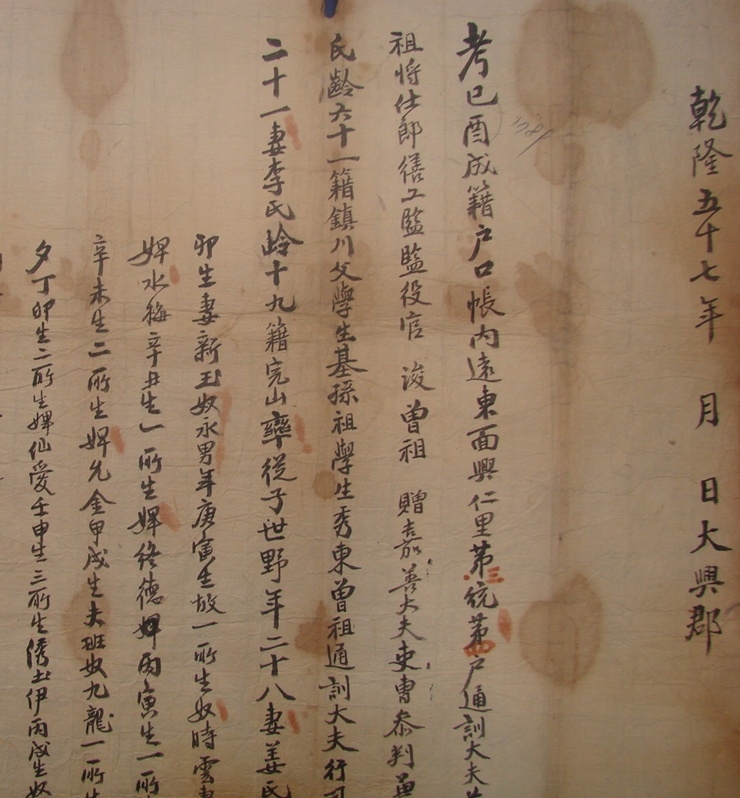 乾隆五十七年 月 日大興郡
考己酉成籍户口帳內遠東面興仁里第三統第四户通訓大夫
祖將仕郎繕工監監役官 浚曾祖 贈嘉善大夫吏曹叅判兼
氏齡六十一籍鎮川父學生基孫祖學生秀東曾祖通訓大夫行司
二十一妻李氏齡十九籍完山率從子世野年二十八妻姜氏
卯生妻新玉奴永男年庚寅生故一所生奴時雲
婢水梅辛丑生一所生婢終德婢丙寅生一所
辛未生二所生婢允金甲戌生夫班奴九龍一所生
夕丁卯生二所生婢仙愛壬申生三所生 伊丙戌生奴